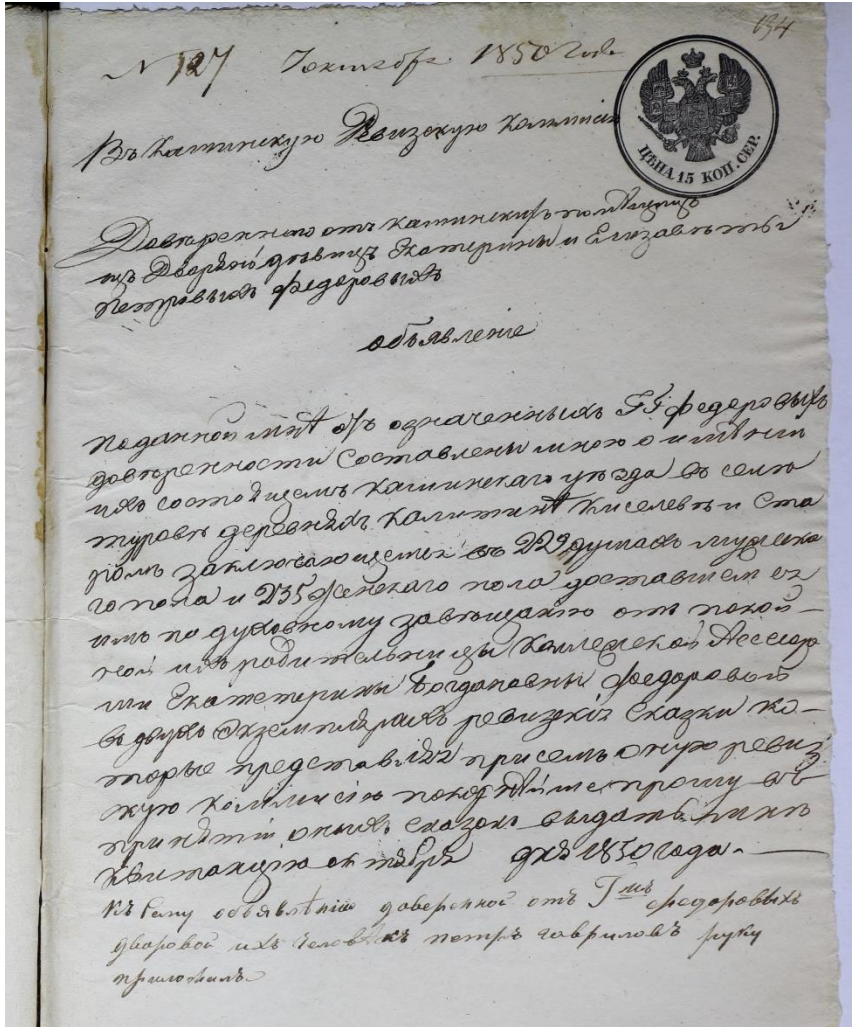 134
N 127 7 октября 1850 Года
Въ Кашинскую Ревизскую Коммисію
ЦѢНА 15 КОП. СЕР.
Довѣреннаго отъ кашинскихъ помѣщицъ
изъ Дворянъ дѣвицъ Екатерины и Елизаветы
Петровыхъ Федоровыхъ
объявленіе
поданной мнѣ отъ означенныхъ ГГ Федоровыхъ
довѣренности Составлены мною о имѣніи
ихъ состоящемъ Кашинскаго уѣзда въ селѣ
Туровѣ деревняхъ Калитинѣ Киселевѣ и Ста
ромъ заключающемся въ 229 душахъ мужска
го пола и 235 женскаго пола доставшемся
имъ по духовному завѣщанію отъ покой-
ной ихъ родительницы Коллежской Ассесор
ши Екатерины Богдановны Федоровой
въ двухъ Экземплярахъ ревизскія Сказки ко-
торые представляя присемъ оную ревиз
кую Коммисію покорнѣйше прошу въ
принятіи оныхъ сказокъ выдать мнѣ
Квитанцію октября дня 1850 года.
Къ Сему объявленію доверенной отъ Г:мъ федоровыхъ
дворовой ихъ человѣкъ петръ гавриловъ руку
приложилъ